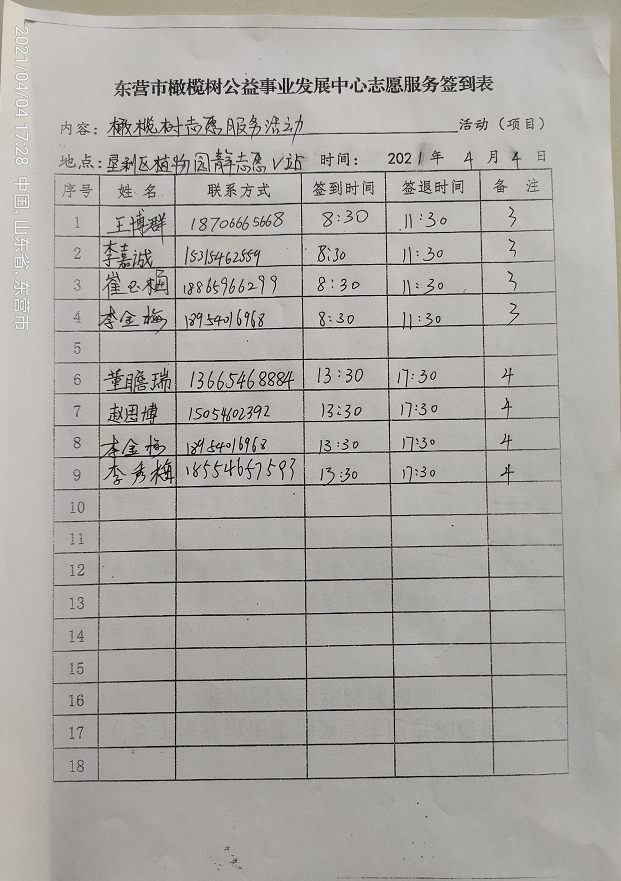 东营市橄榄树公益事业发展中心志愿服务签到表
内容：橄榄树志愿服务活动 活动（项目）
地点：垦利区植物园静志愿V站 时间： 2021年 4 月 4 日
序号 姓 名 联系方式 签到时间 签退时间 备 注
1 王博群 18706665668 8:30 11:30 3
2 李嘉诚 15315462559 8:30 11:30 3
3 崔玉梅 18865966299 8:30 11:30 3
4 李金梅 18954016968 8:30 11:30 3
5
6 董瞻瑞 13665468884 13:30 17:30 4
7 赵思博 15054602392 13:30 17:30 4
8 李金梅 18954016968 13:30 17:30 4
9 李秀梅 18554657593 13:30 17:30 4
10
11
12
13
14
15
16
17
18
2021/04/04 17:28 中国, 山东省, 东营市